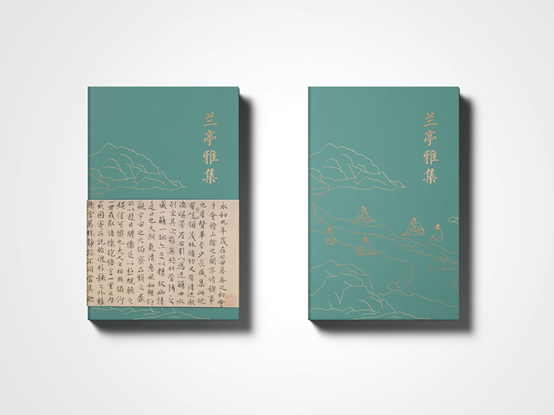 兰亭雅集
永和九年歲在癸丑暮春之初會
于會稽山陰之蘭亭脩稧事
也群賢畢至少長咸集此地
有崇山峻領茂林脩竹又有清流激
湍暎帶左右引以為流觴曲水
列坐其次雖無絲竹管弦之
盛一觴一詠亦足以暢敘幽情
是日也天朗氣清惠風和暢仰
觀宇宙之大俯察品類之盛
所以遊目騁懷足以極視聽之
娛信可樂也夫人之相與俯仰
一世或取諸懷抱悟言一室之內
或因寄所託放浪形骸之外雖
趣舍萬殊靜躁不同當其欣
兰亭雅集